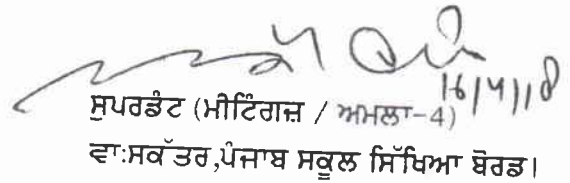 16/4/18
ਸੁਪਰਡੰਟ (ਮੀਟਿੰਗਜ਼ / ਅਮਲਾ-4)
ਵਾ:ਸਕੱਤਰ,ਪੰਜਾਬ ਸਕੂਲ ਸਿੱਖਿਆ ਬੋਰਡ।